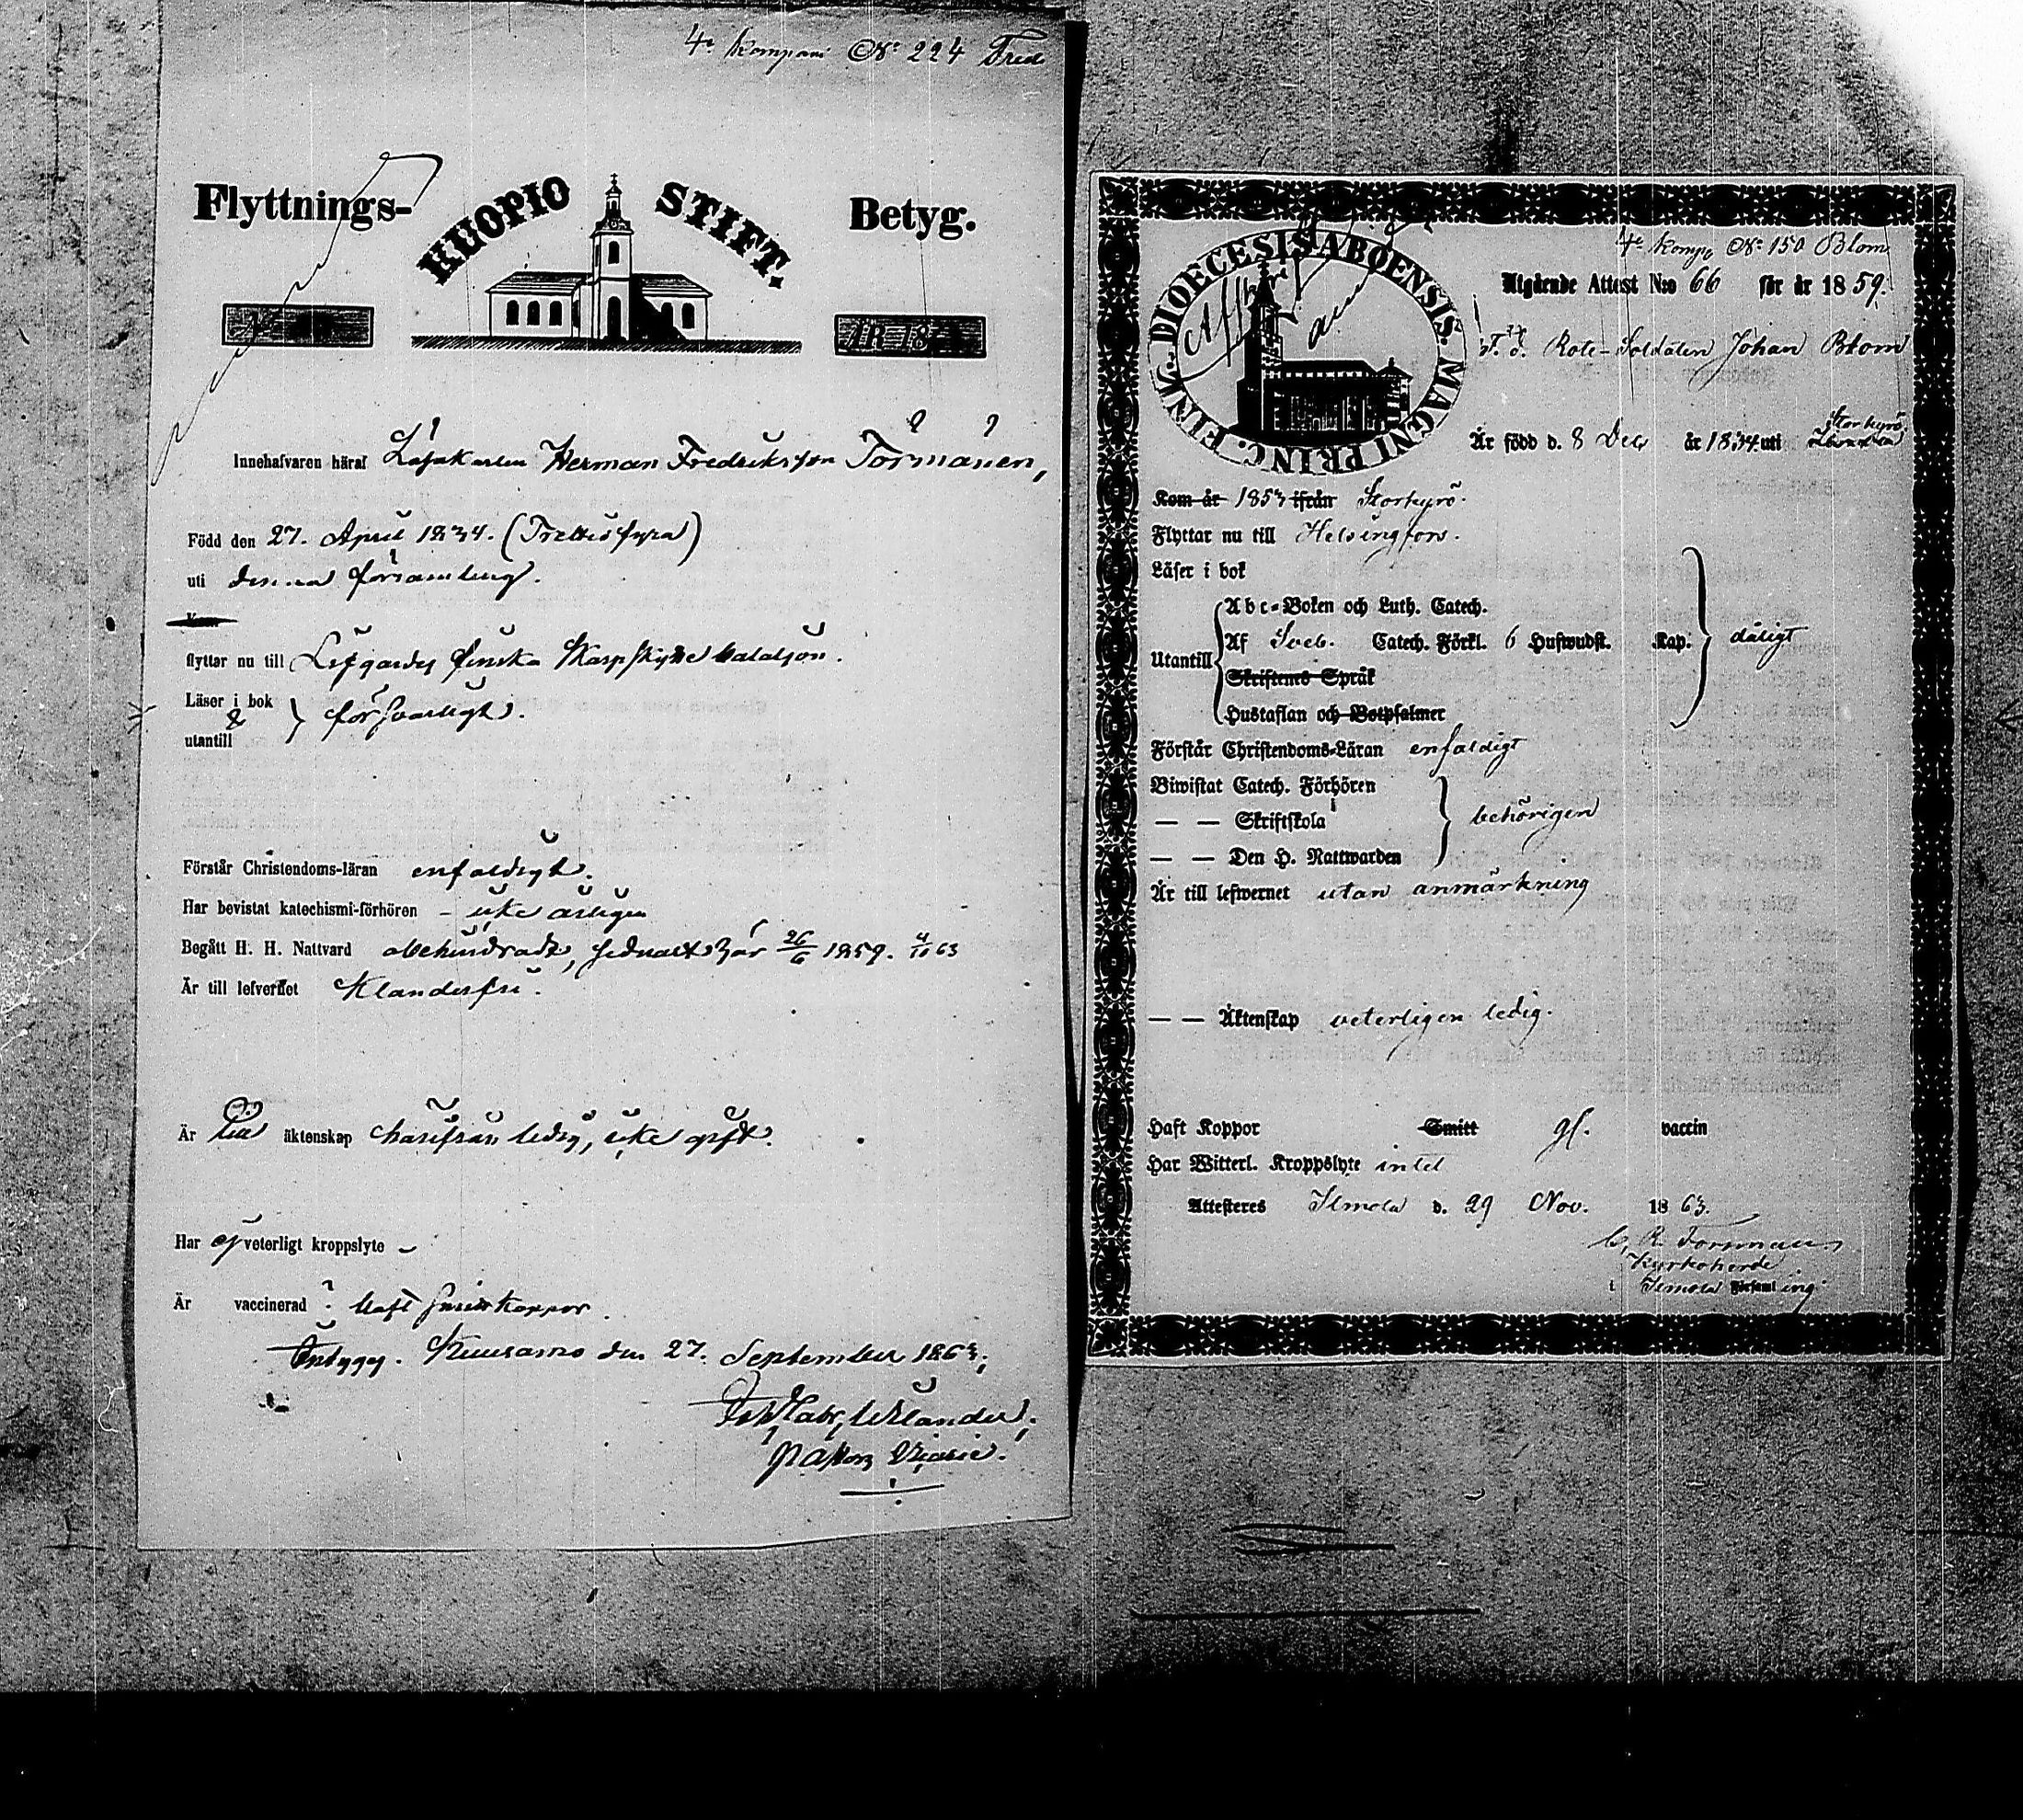 4e Kompani No 224 Fred
Flyttnings- KUOPIO STIFT. Betyg.
ÅR 186
Innehafvaren häraf Lösakarlen Herman Fredriksson Törmänen,
Född den 27. April 1834. (Trettiofyra)
uti denna församling.
flyttar nu till Lifgardes finska Skarpskytte bataljon.
Läser i bok
&
utantill } försvarligt.
Förstår Christendoms-läran enfaldigt.
Har bevistat katechismi-förhören – icke årligen
Begått H. H. Nattvard obehindradt, sednast här 26/6 1859. 4/10 63
Är till lefvernet Klanderfri.
Är till äktenskap härifrån ledig, icke gift.
Har ej veterligt kroppslyte
Är vaccinerad ? haft smittkoppor.
Intygas. Kuusamo den 27. September 1863;
Pastors Vicarie.
4e Komp. No 150 Blom
DIOECESIS ABOENSIS. MAGNI PRINC. FINL.
Utgående Attest N:o 66 för år 1859.
F. d. Rote-Soldaten Johan Blom
Är född d. 8 Dec år 1834 uti Storkyrö
Kom år 1853 ifrån Storkyrö.
Flyttar nu till Helsingfors.
Läser i bok
Utantill { Abc-Boken och Luth. Catech.
Af Sveb. Catech. Förkl. 6 Hufwudst. Kap. } dåligt
Skriftenes Språk
Hustaflan och Botpsalmer
Förstår Christendoms-Läran enfaldigt
Biwistat Catech. Förhören
— — Skriftskola } behörigen
— — Den H. Nattwarden
Är till lefwernet utan anmärkning
— — Äktenskap veterligen ledig.
Haft Koppor Smitt gl. vaccin
Har Witterl. Kroppslyte intet
Attesteres Ilmola d. 29 Nov. 1863.
C. R. Forsman
Kyrkoherde
i Ilmola Församling.